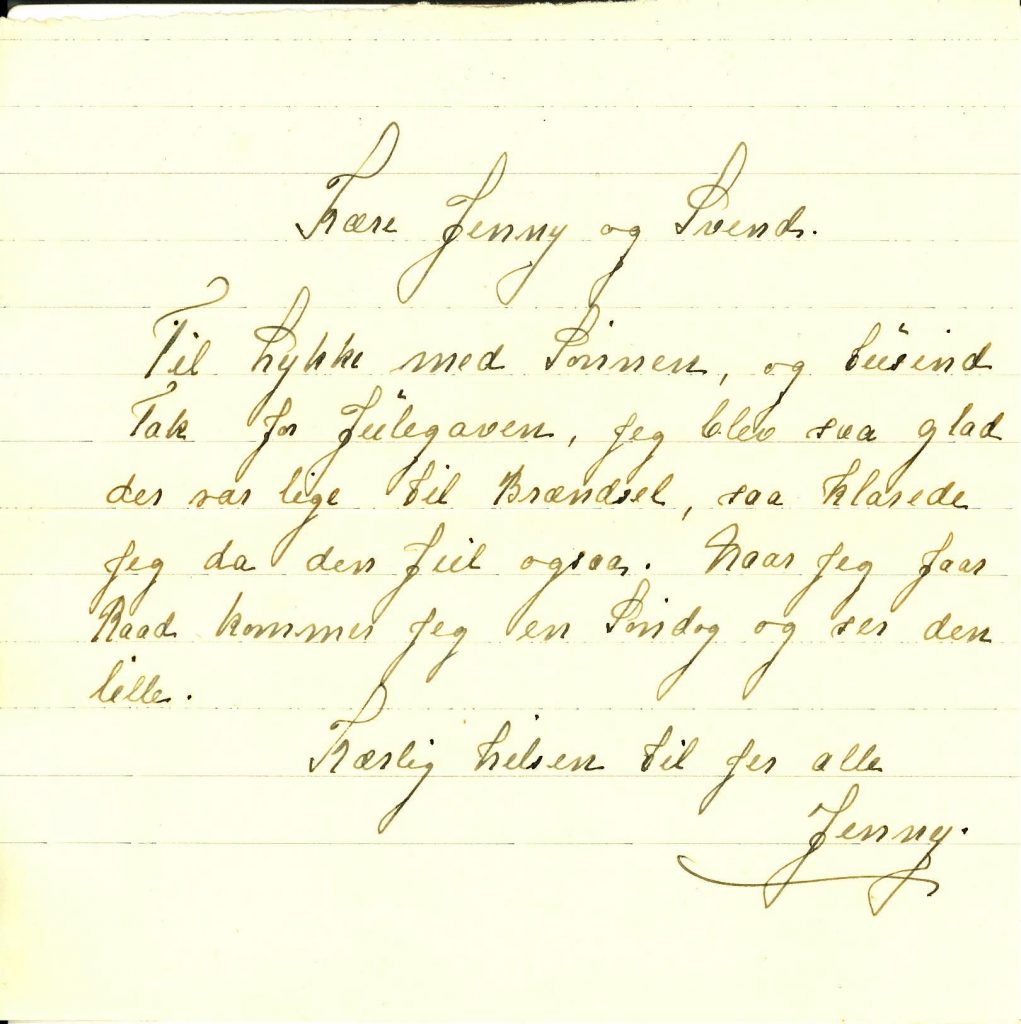 Kære Jenny og Svend.
Til Lykke med Sönnen, og tusind
Tak for Julegaven, jeg blev saa glad
der var lige til Brændsel, saa klarede
jeg da den Jul ogsaa. Naar jeg faar
Raad kommer jeg en Söndag og ser den
lille.
Kærlig hilsen til jer alle
Jenny.